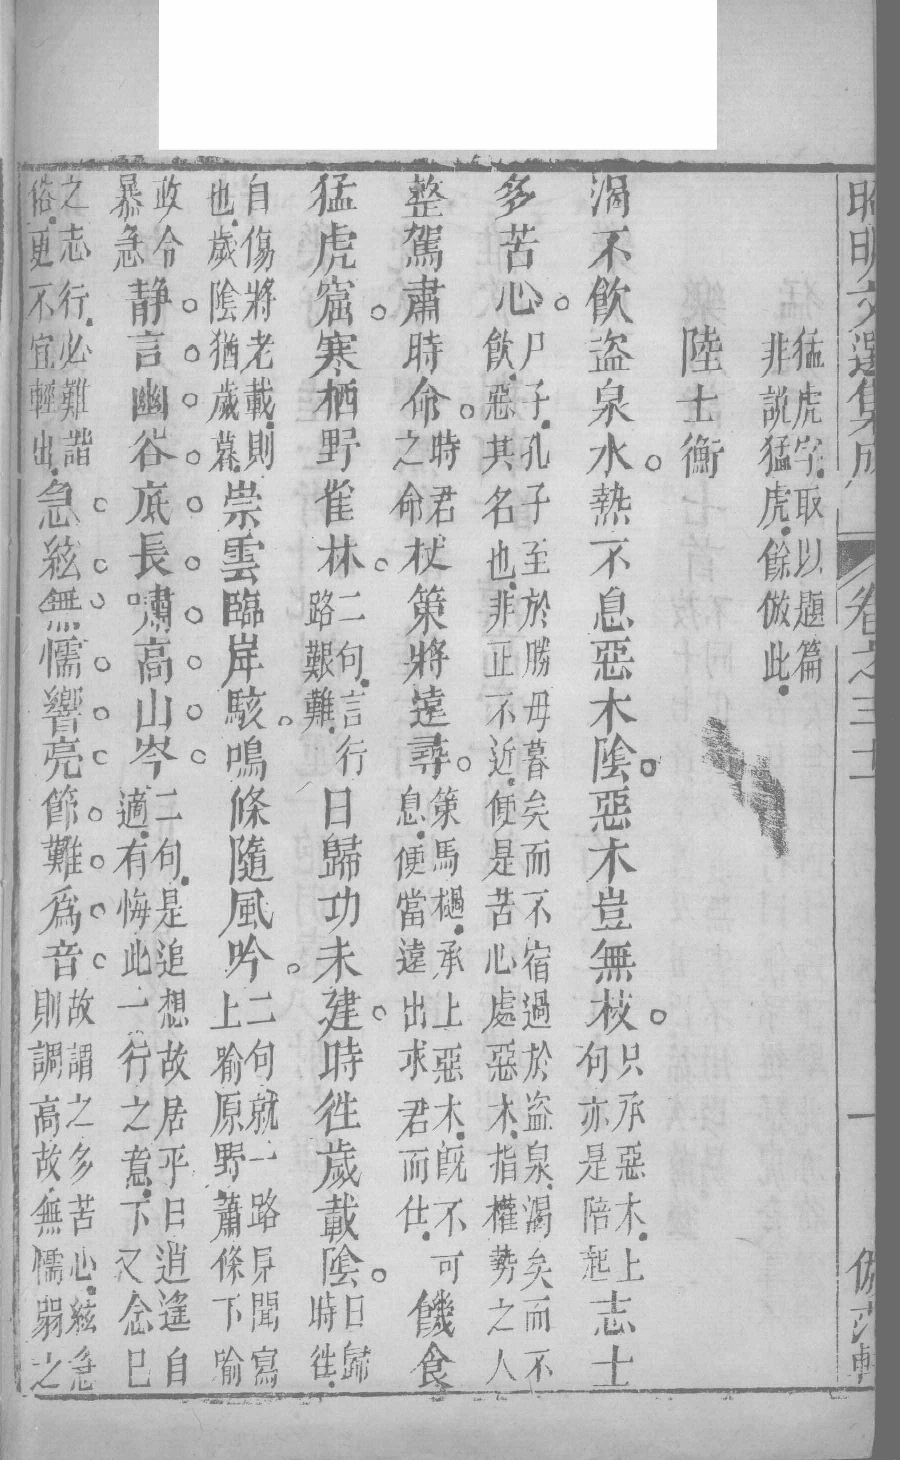 昭明文選集成 卷之三十 一
猛虎字取以題篇
非説猛虎餘倣此
陸士衡
渴不飲盜泉水熱不息惡木陰惡木豈無枝只承惡木上句亦是陪起志士
多苦心尸子孔子至於勝母暮矣而不宿過於盜泉渴矣而不飲惡其名也非正不近便是苦心處惡木指權勢之人
整駕肅時命時君之命杖策將遠尋策馬檛承上惡木既不可息便當遠出求君而仕饑食
猛虎窟寒栖野雀林二句言行路艱難日歸功未建時徃歲載陰日歸時徃
自傷將老載則也歲陰猶歲暮崇雲臨岸駭鳴條隨風吟二句就一路見聞寫上喻原野蕭條下喻
政令暴急静言幽谷底長嘯高山岑二句是追想故居平日逍遙自適有悔此一行之意下又念已
之志行必難諧俗更不宜輕出急絃無懦響亮節難爲音故謂之多苦心絃急則調高故無懦弱之